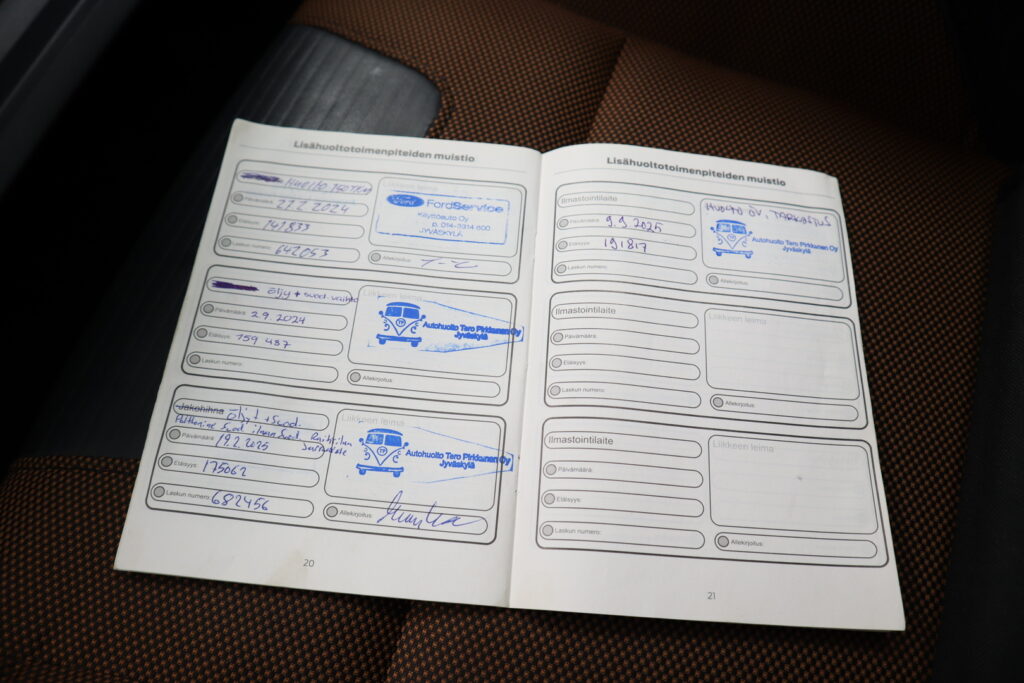 Lisähuoltotoimenpiteiden muistio
Huolto 150TKM
Päivämäärä: 22.2.2024
Etäisyys: 141833
Laskun numero: 642053
Liikkeen leima
Ford FordService
Käyttöauto Oy
p. 014-3314 600
JYVÄSKYLÄ
Allekirjoitus:
öljy + suod. vaihto
Päivämäärä: 2.9.2024
Etäisyys: 159 487
Laskun numero:
Liikkeen leima
TP
Autohuolto Tero Pirkkanen Oy
Jyväskylä
Allekirjoitus:
Jakohihna Öljyt + Suod.
Suod ilman Suod Raitisilma
Päivämäärä: 19.2.2025
Etäisyys: 175062
Laskun numero: 682456
Liikkeen leima
TP
Autohuolto Tero Pirkkanen Oy
Jyväskylä
Allekirjoitus:
20
Lisähuoltotoimenpiteiden muistio
Ilmastointilaite
Päivämäärä: 9.9.2025
Etäisyys: 191817
Laskun numero:
HUOLTO ÖV, TARKASTUS
Autohuolto Tero Pirkkanen Oy
Jyväskylä
Allekirjoitus:
Ilmastointilaite
Päivämäärä:
Etäisyys:
Laskun numero:
Liikkeen leima
Allekirjoitus:
Ilmastointilaite
Päivämäärä:
Etäisyys:
Laskun numero:
Liikkeen leima
Allekirjoitus:
21